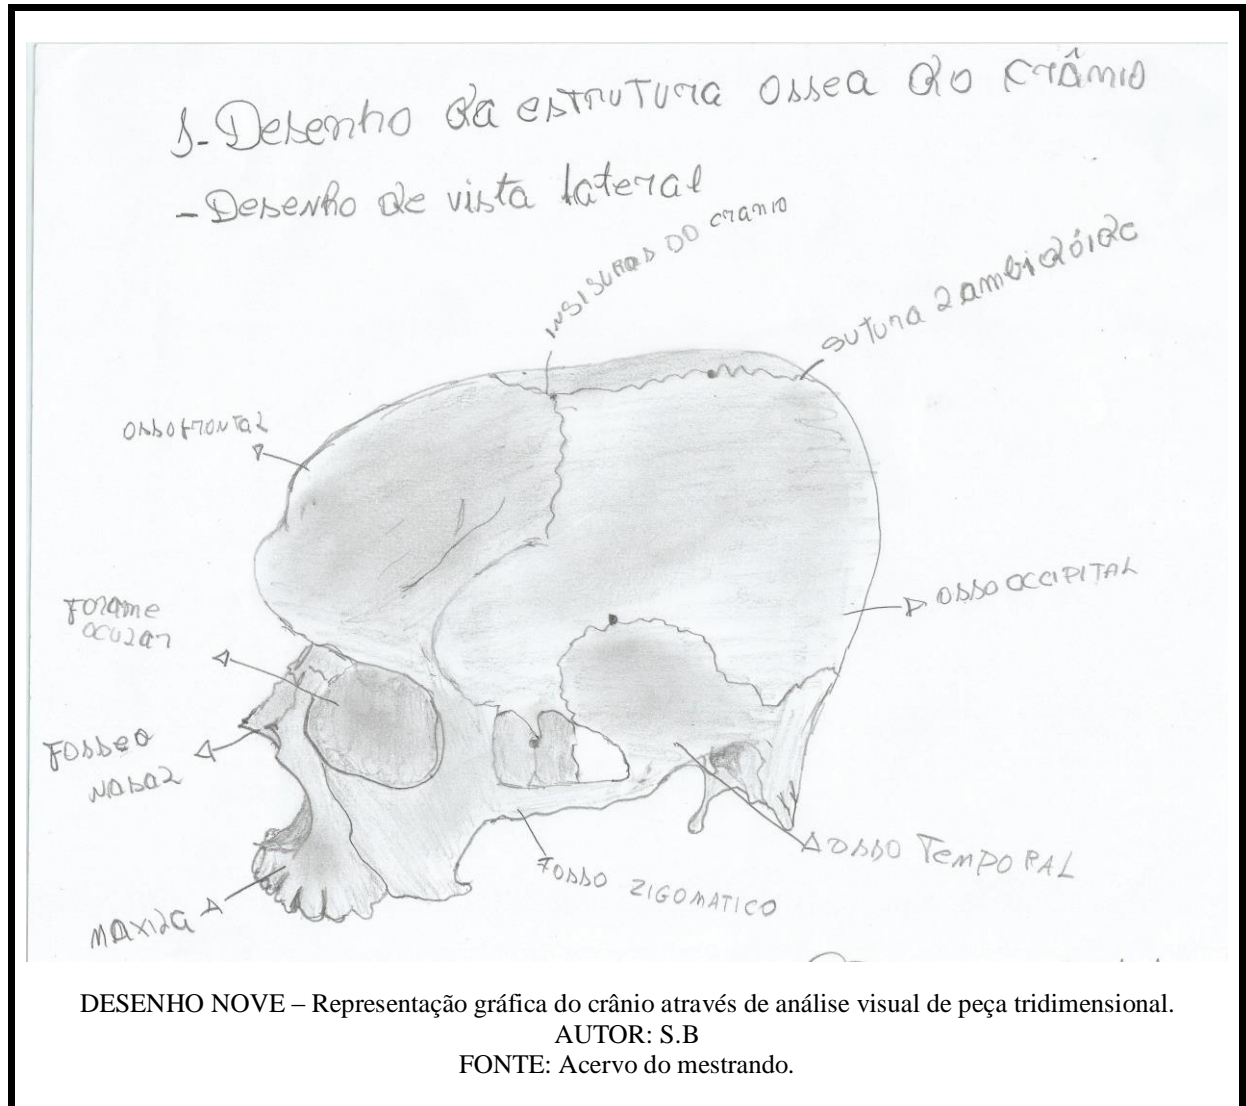 1-Desenho da estrutura ossea do crânio
-Desenho de vista lateral
INSISURAS DO cranio
sutura lambidóide
osso frontal
Forame
ocular
osso occipital
Fosseo
nasal
osso Temporal
Fosso zigomatico
maxila
DESENHO NOVE – Representação gráfica do crânio através de análise visual de peça tridimensional.
AUTOR: S.B
FONTE: Acervo do mestrando.